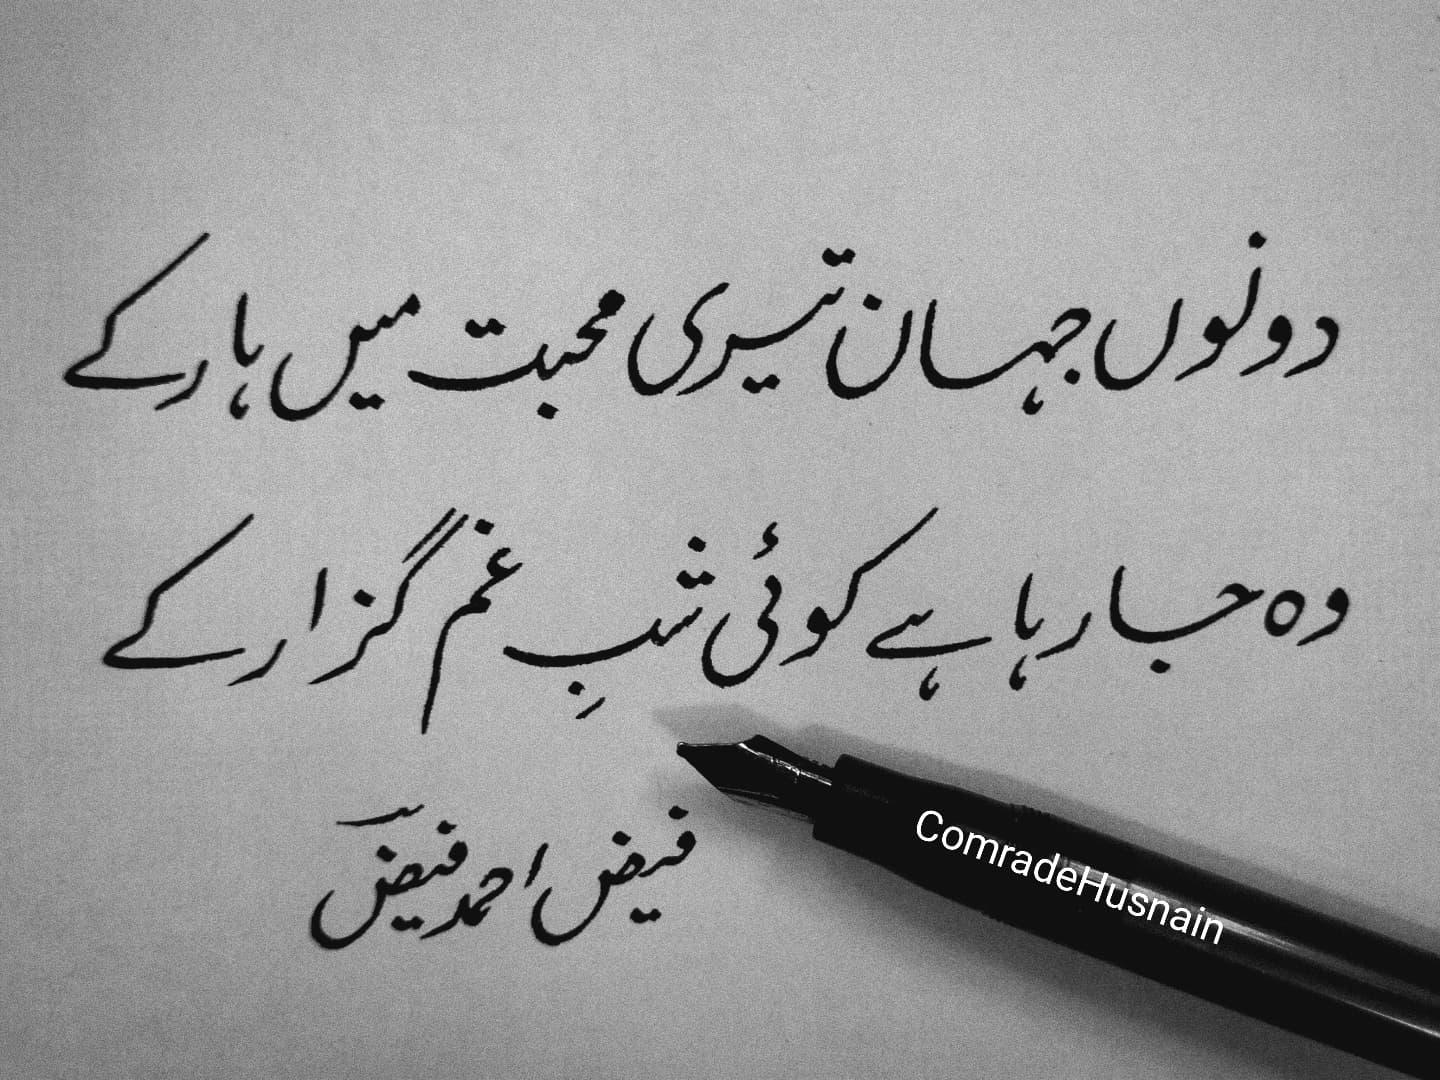 دونوں جہان تیری محبت میں ہار کے
وہ جا رہا ہے کوئی شبِ غم گزار کے
فیض احمد فیضؔ
ComradeHusnain